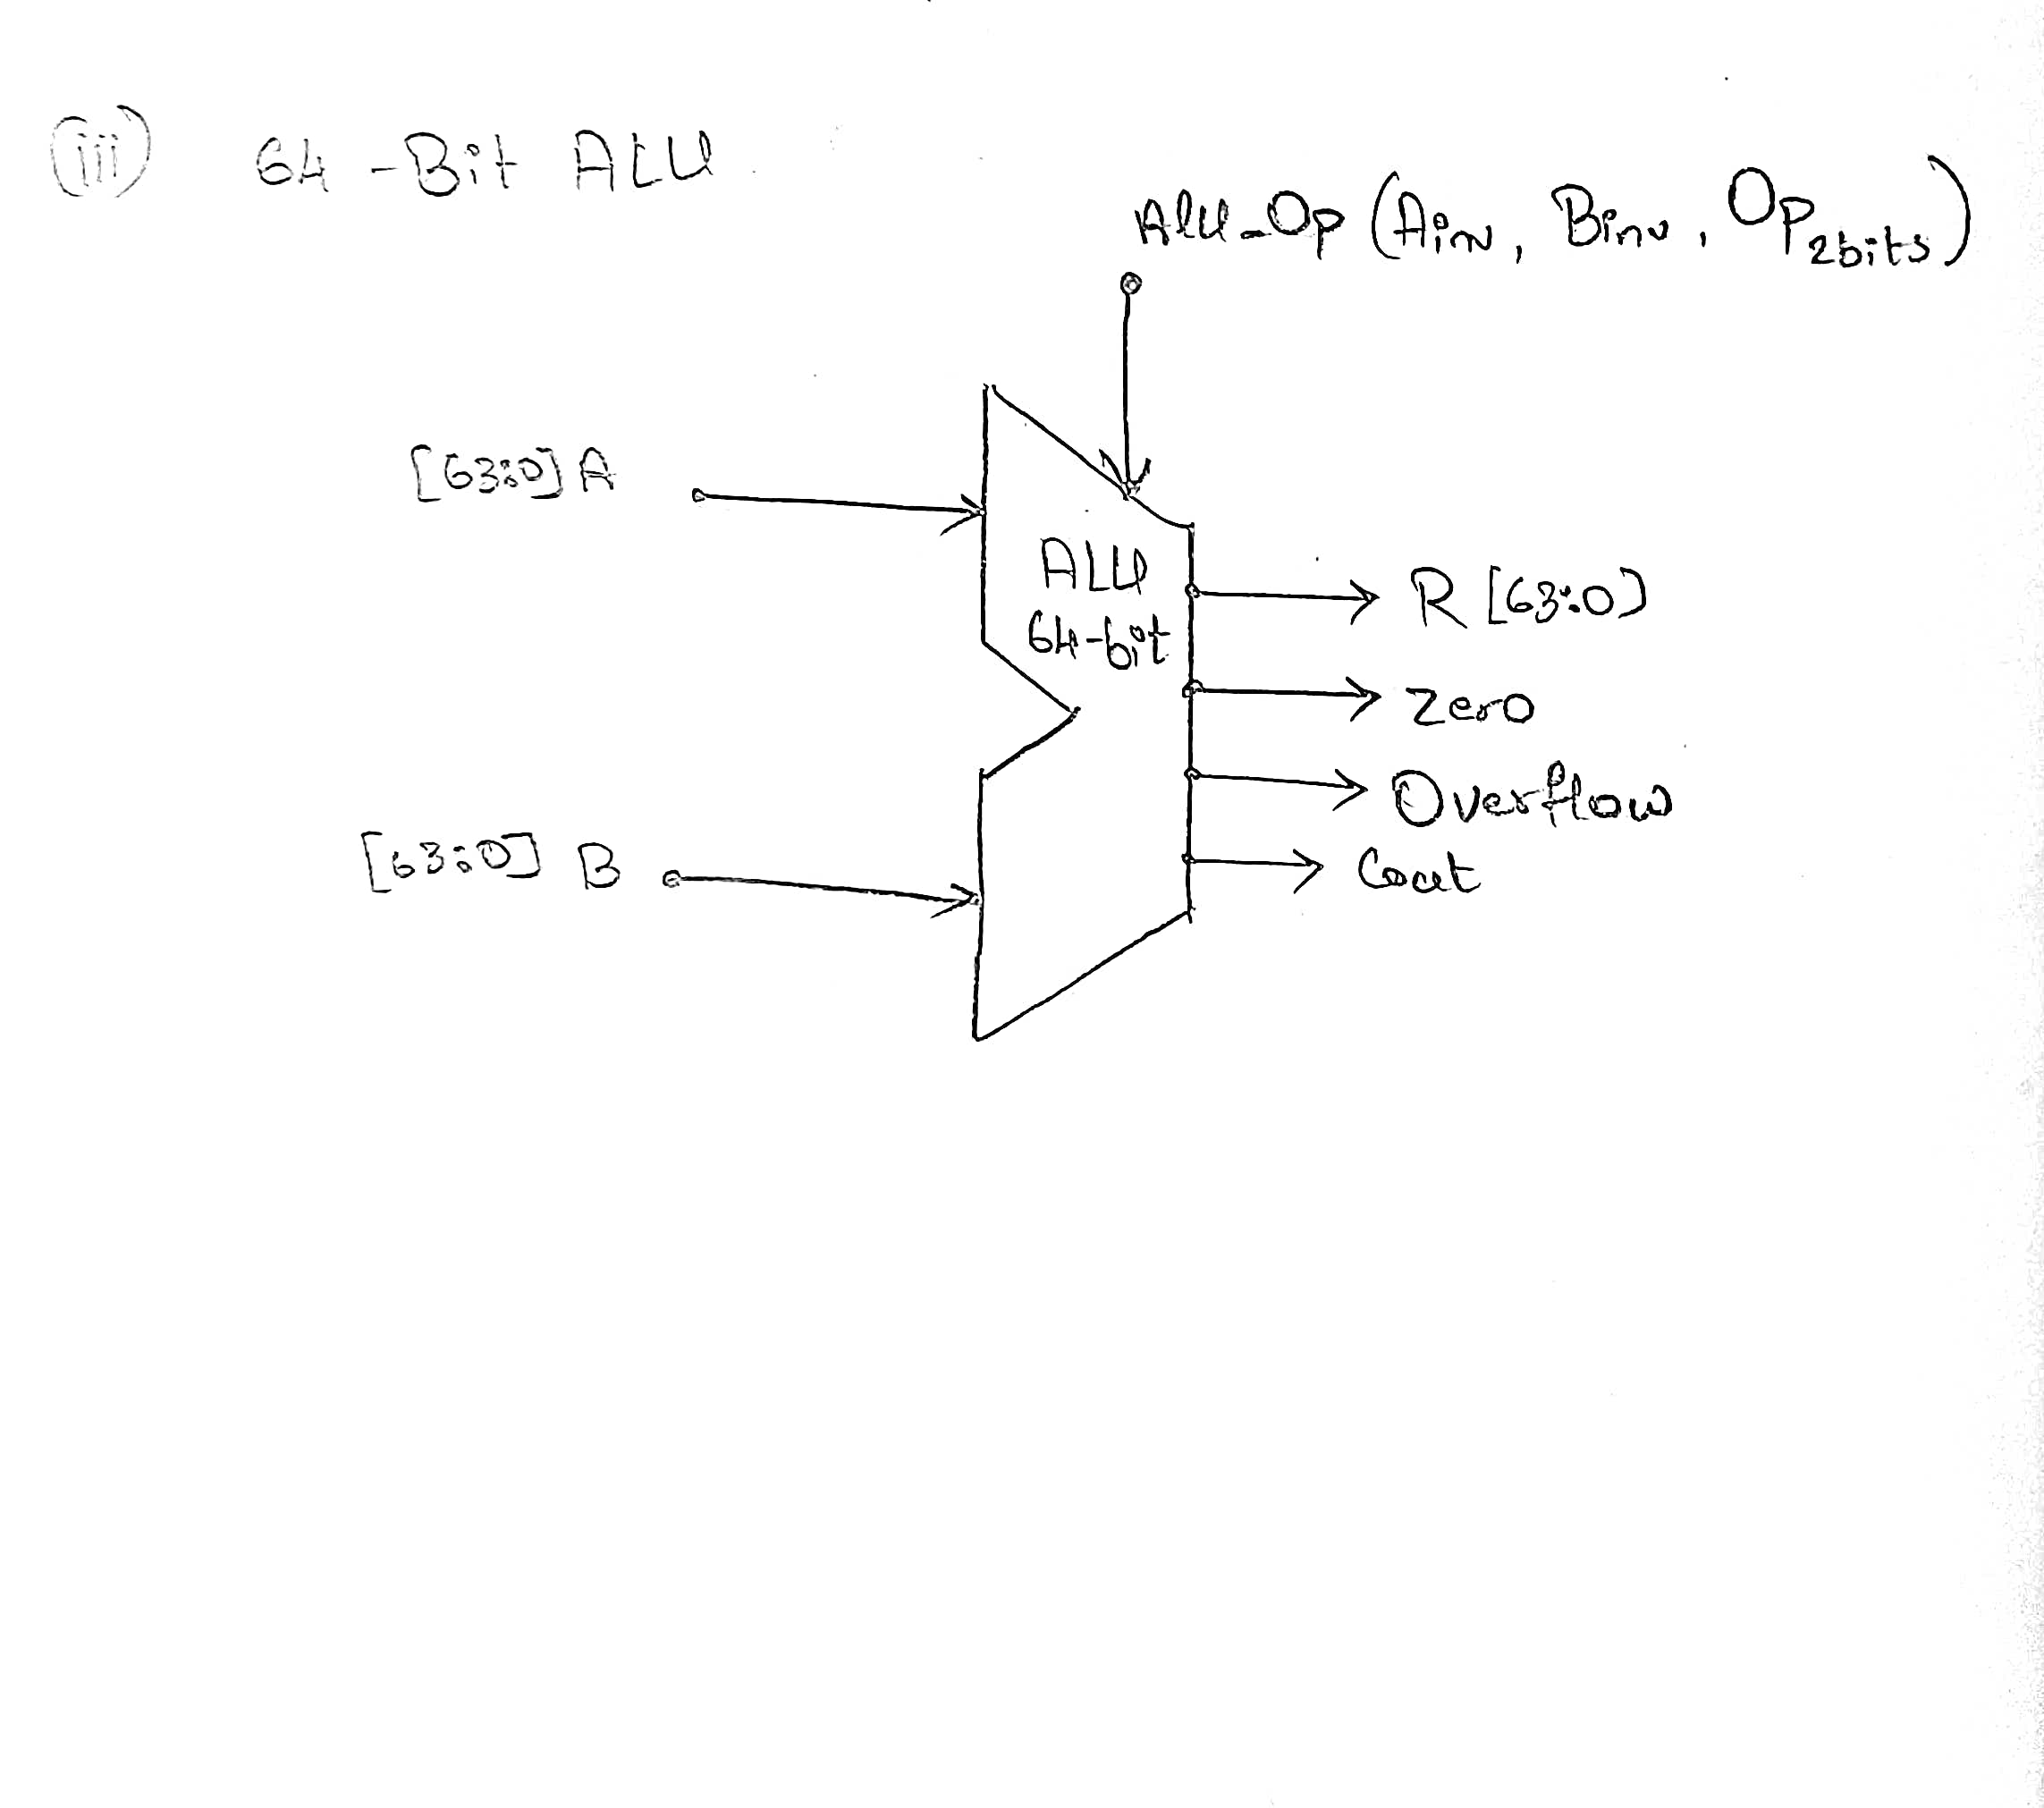 (iii) 64-Bit ALU
ALU_Op (Ainv, Binv, Op2bits)
[63:0] A
ALU
64-bit
R [63:0]
Zero
Overflow
[63:0] B
Cout